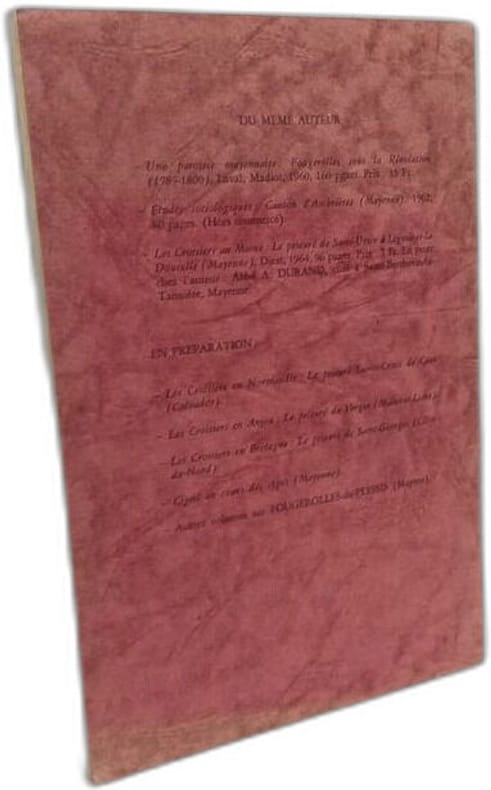 DU MEME AUTEUR
Une paroisse mayennaise: Fougerolles sous la Révolution
(1789-1800), Laval, Madiot, 1960, 160 pages. Prix : 15 Fr.
— Etudes sociologiques: Canton d'Ambrières (Mayenne). 1962,
80 pages. (Hors commerce)
— Les Croisiers au Maine: Le prieuré de Saint-Ursin à Lignières-la
Doucelle (Mayenne), 1964, 96 pages. Prix : 7 Fr. En vente
chez l'auteur: Abbé A. DURAND, curé à
Tannière, Mayenne.
EN PREPARATION:
— Les Croisiers en Normandie: Le prieuré Sainte-Croix de Caen
(Calvados).
— Les Croisiers en Anjou: Le prieuré du Verger (Maine-et-Loire).
— Les Croisiers en Bretagne: Le prieuré de Saint-Georges (Côtes-
du-Nord).
— Cigné au cours des âges (Mayenne).
— Autres volumes sur FOUGEROLLES-du-PLESSIS (Mayenne).